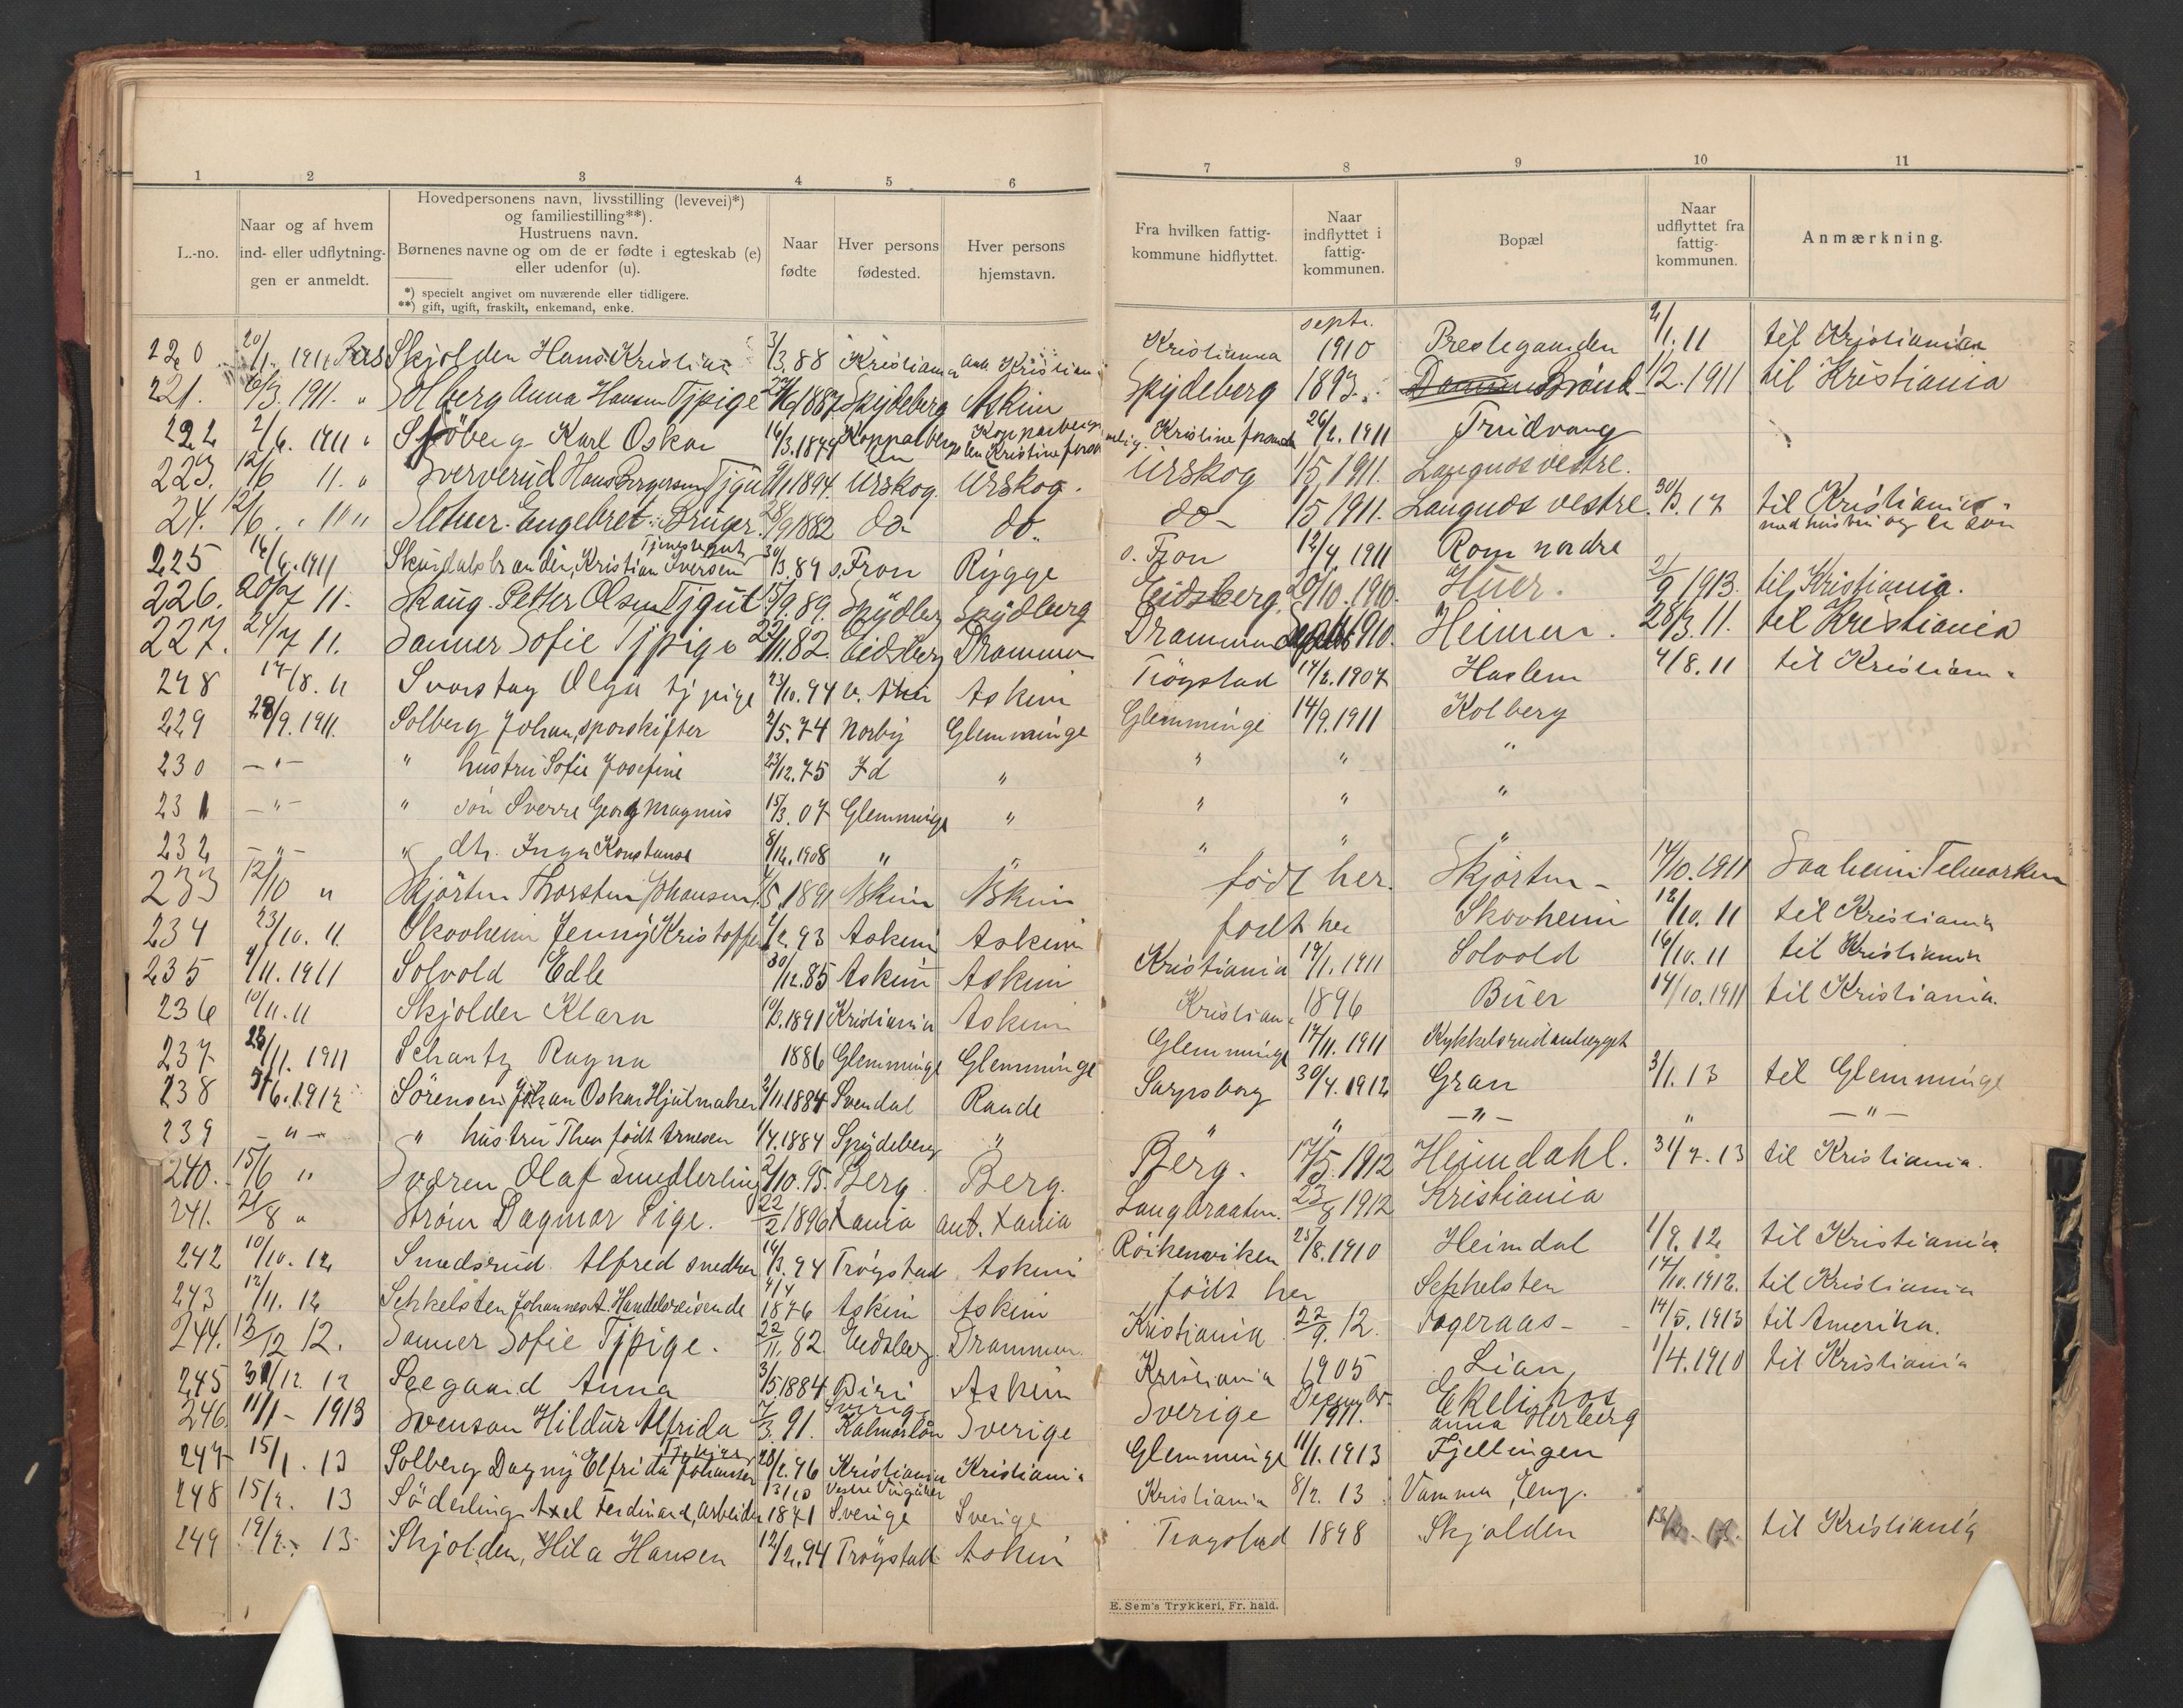 1 2 3 4 5 6 7 8 9 10 11
L.-no.
Naar og af hvem ind- eller udflytningen er anmeldt.
Hovedpersonens navn, livsstilling (levevei)*) og familiestilling**).
Hustruens navn.
Børnenes navne og om de er fødte i egteskab (e) eller udenfor (u).
*) specielt angivet om nuværende eller tidligere.
**) gift, ugift, fraskilt, enkemand, enke.
Naar fødte
Hver persons fødested.
Hver persons hjemstavn.
Fra hvilken fattigkommune hidflyttet.
Naar indflyttet i fattigkommunen.
Bopæl
Naar udflyttet fra fattigkommunen.
Anmærkning.
220 20/1. 1911 Skjolden Hans Kristian 3/3.88 Kristiania Kristiania Kristiania septr. 1910 Prestegaarden 2/1.11 til Kristiania
221. 6/3. 1911. " Solberg Anna Hansen Tjpige 1887 Spydeberg Askim Spydeberg 1893. Brand 1/2.1911 til Kristiania
222 2/6. 1911 " Sjöberg Karl Oskar 16/3.1877 Kopparbergs län Kopparbergs län Kristine Kristine 26/2.1911 Trudvang
223. 12/6 11. " Sververud Hans Tjgut 1894. Urskog. Urskog. Urskog 1/5 1911. Langnes vestre.
24. 12/6. " 11 " Engebret Bruger. 28/9 1882 do- do. do- 1/5 1911. Langnes vestre. 30/3.17 til Kristiania med hustru og en sön
225 14/6.1911 Kristian Iversen Tjenestegut 30/3.89 s. Fron Rygge s. Fron 12/4.1911 Rom nordre
226. 20/7 11. Skaug. Petter Olsen Tjgut 15/9.89. Spydberg Spydberg Eidsberg 20/10.1910. Huer. 2/9 1913. til Kristiania.
227. 24/7 11. Sanner Sofie Tjpige 22/11.82. Eidsberg Drammen Drammen Septbr 1910. Heimen. 28/3.11. til Kristiania
228 17/8.11 Olga tj pige 23/10.94 Askim Trögstad 14/2.1907 Haslem 4/8.11 til Kristiania
229 28/9.1911. Solberg Johan, sporskifter 2/5.74 Norby Glemminge Glemminge 14/9.1911 Kolberg
230 - " - " hustru Sofie Josefine 23/12.75 Id " " " "
231 - " - " sön Sverre Georg Magnus 15/3.07 Glemminge " " " "
232 - " - " dtr. Inga Konstanse 8/12.1908 " " " " "
233 12/10 " Skjörten Thorsten Johansen 1/5.1891 Askim Askim födt her. Skjörten - 14/10.1911 Saaheim Telemarken
234 23/10. 11. Skovheim Jenny Kristoffe 1/2.93 Askim Askim födt her Skovheim 12/10.11 til Kristiania
235 9/11.1911 Solvold Edle 30/12.85 Askim Askim Kristiania 19/1.1911 Solvold 16/10.11 til Kristiania
236 10/11.11 Skjolden Klara 10/3.1891 Kristiania Askim Kristiania 1896 Buer 14/10.1911 til Kristiania.
237 23/11. 1911 Schantz Ragna 1886 Glemminge Glemminge Glemminge 17/11.1911 Kykkelsrudanlegget
238 5/6.1912 Sörensen Johan Oskar Hjulmaker 2/11.1884 Svendal Raade Sarpsborg 30/4.1912 Gran 3/1.13 til Glemminge
239 - " - " hustru Thea födt Arnesen 1/4.1884 Spydeberg " " " - " - " - " -
240. 15/6 " Sværen Olaf Smedlerling 2/10.95. Berg. Berg. Berg. 17/5.1912 Heimdahl. 31/7.13 til Kristiania.
241. 21/8 " Ström Dagmar Pige. 22/2 1896 Xania ant. Xania Langbraaten. 23/8 1912 Kristiania
242 10/10. 12 Smedsrud Alfred smedsven 14/3.94 Trögstad Askim Röikenviken 25/8.1910 Heimdal 1/9.12 til Kristiania
243 12/11. 12 Sekkelsten Johannes A. Handelsreisende 4/4 1876 Askim Askim födt her Sekkelsten 14/10.1912. til Kristiania
244. 13/12 12. Sanner Sofie Tjpige. 22/11.82 Eidsberg. Drammen. Kristiania 22/9.12. Fageraas - 14/5.1913 til Amerika.
245 31/12. 12 Seegaard Anna 3/5.1884 Biri Askim Kristiania 1905 Lian 1/4.1910 til Kristiania
246. 11/1 - 1913 Svenson Hildur Alfrida 7/3.91. Sverige Kalmarlän Sverige Sverige Desembr. 1911. Ekeli hos Anna Herberg
247 15/1. 13 Solberg Dagny Elfrida Johansen 28/2.96 Kristiania Kristiania Glemminge 11/1.1913 Fjellingen
248 15/2. 13 Söderling Axel Ferdinand, arbeider 13/10 1871 Vestre Vingåker Sverige Sverige Kristiania 8/2.13 Vamma, Eng.
249 19/2. 13 Skjolden, Hilda Hansen 12/2.94 Trögstad Askim Trögstad 1898 Skjolden til Kristiania
E. Sem's Trykkeri, Fr. hald.